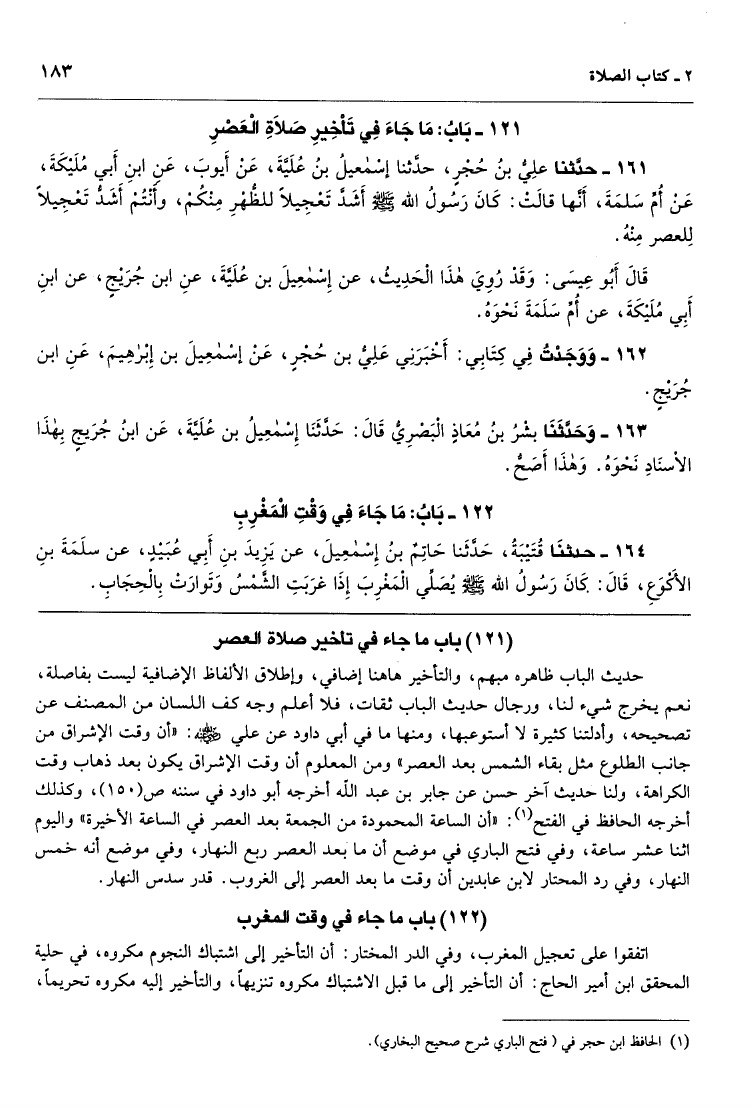 ٢ - كتاب الصلاة
١٨٣
١٢١ - بَابُ: مَا جَاءَ فِي تَأْخِيرِ صَلَاةِ الْعَصْرِ
١٦١ - حدَّثنا عليُّ بنُ حُجْرٍ، حدَّثنا إسْمٰعيلُ بنُ عُلَيَّةَ، عَنْ أيوبَ، عَنِ ابنِ أبي مُلَيْكَةَ،
عَنْ أُمِّ سَلمَةَ، أَنَّها قالَتْ: كَانَ رَسُولُ الله ﷺ أَشَدَّ تَعْجِيلاً للظُّهْرِ مِنْكُمْ، وَأَنْتُمْ أَشَدُّ تَعْجِيلاً
لِلعصرِ مِنْهُ.
قَالَ أَبُو عِيسَى: وَقَدْ رُوِيَ هٰذَا الْحَدِيثُ، عن إِسْمٰعِيلَ بن عُلَيَّةَ، عنِ ابن جُرَيْجٍ، عن ابنِ
أَبي مُلَيْكَةَ، عن أُمِّ سَلَمَةَ نَحْوَهُ.
١٦٢ - وَوَجَدْتُ فِي كِتَابِي: أَخْبَرَنِي عَلِيُّ بن حُجْرٍ، عَنْ إسْمٰعِيلَ بن إبْرٰهيمَ، عَنِ ابن
جُرَيْجٍ.
١٦٣ - وَحَدَّثَنَا بشْرُ بنُ مُعَاذٍ الْبَصْرِيُّ قَالَ: حَدَّثَنَا إسْمٰعِيلُ بن عُلَيَّةَ، عَن ابنُ جُرَيج بِهٰذَا
الأسنَادِ نَحْوَهُ. وَهٰذَا أَصَحُّ.
١٢٢ - بَابُ: مَا جَاءَ فِي وَقْتِ الْمَغْرِبِ
١٦٤ - حدثنا قُتَيْبَةُ، حَدَّثَنا حَاتِمُ بنُ إسْمٰعِيلَ، عن يَزيدَ بنِ أَبي عُبَيْدٍ، عن سلَمَةَ بنِ
الأَكْوَعِ، قَالَ: كَانَ رَسُولُ الله ﷺ يُصَلِّي الْمَغْرِبَ إِذَا غَرَبَتِ الشَّمْسُ وَتَوارَتْ بِالْحِجَابِ.
(١٢١) باب ما جاء في تأخير صلاة العصر
حديث الباب ظاهره مبهم، والتأخير هاهنا إضافي، وإطلاق الألفاظ الإضافية ليست بفاصلة،
نعم يخرج شيء لنا، ورجال حديث الباب ثقات، فلا أعلم وجه كف اللسان من المصنف عن
تصحيحه، وأدلتنا كثيرة لا أستوعبها، ومنها ما في أبي داود عن علي رضي الله عنه: «أن وقت الإشراق من
جانب الطلوع مثل بقاء الشمس بعد العصر» ومن المعلوم أن وقت الإشراق يكون بعد ذهاب وقت
الكراهة، ولنا حديث آخر حسن عن جابر بن عبد اللّه أخرجه أبو داود في سننه ص(١٥٠)، وكذلك
أخرجه الحافظ في الفتح(١): «أن الساعة المحمودة من الجمعة بعد العصر في الساعة الأخيرة» واليوم
اثنا عشر ساعة، وفي فتح الباري في موضع أن ما بعد العصر ربع النهار، وفي موضع أنه خمس
النهار، وفي رد المحتار لابن عابدين أن وقت ما بعد العصر إلى الغروب. قدر سدس النهار.
(١٢٢) باب ما جاء في وقت المغرب
اتفقوا على تعجيل المغرب، وفي الدر المختار: أن التأخير إلى اشتباك النجوم مكروه، في حلية
المحقق ابن أمير الحاج: أن التأخير إلى ما قبل الاشتباك مكروه تنزيهاً، والتأخير إليه مكروه تحريماً،
(١) الحافظ ابن حجر في ( فتح الباري شرح صحيح البخاري).